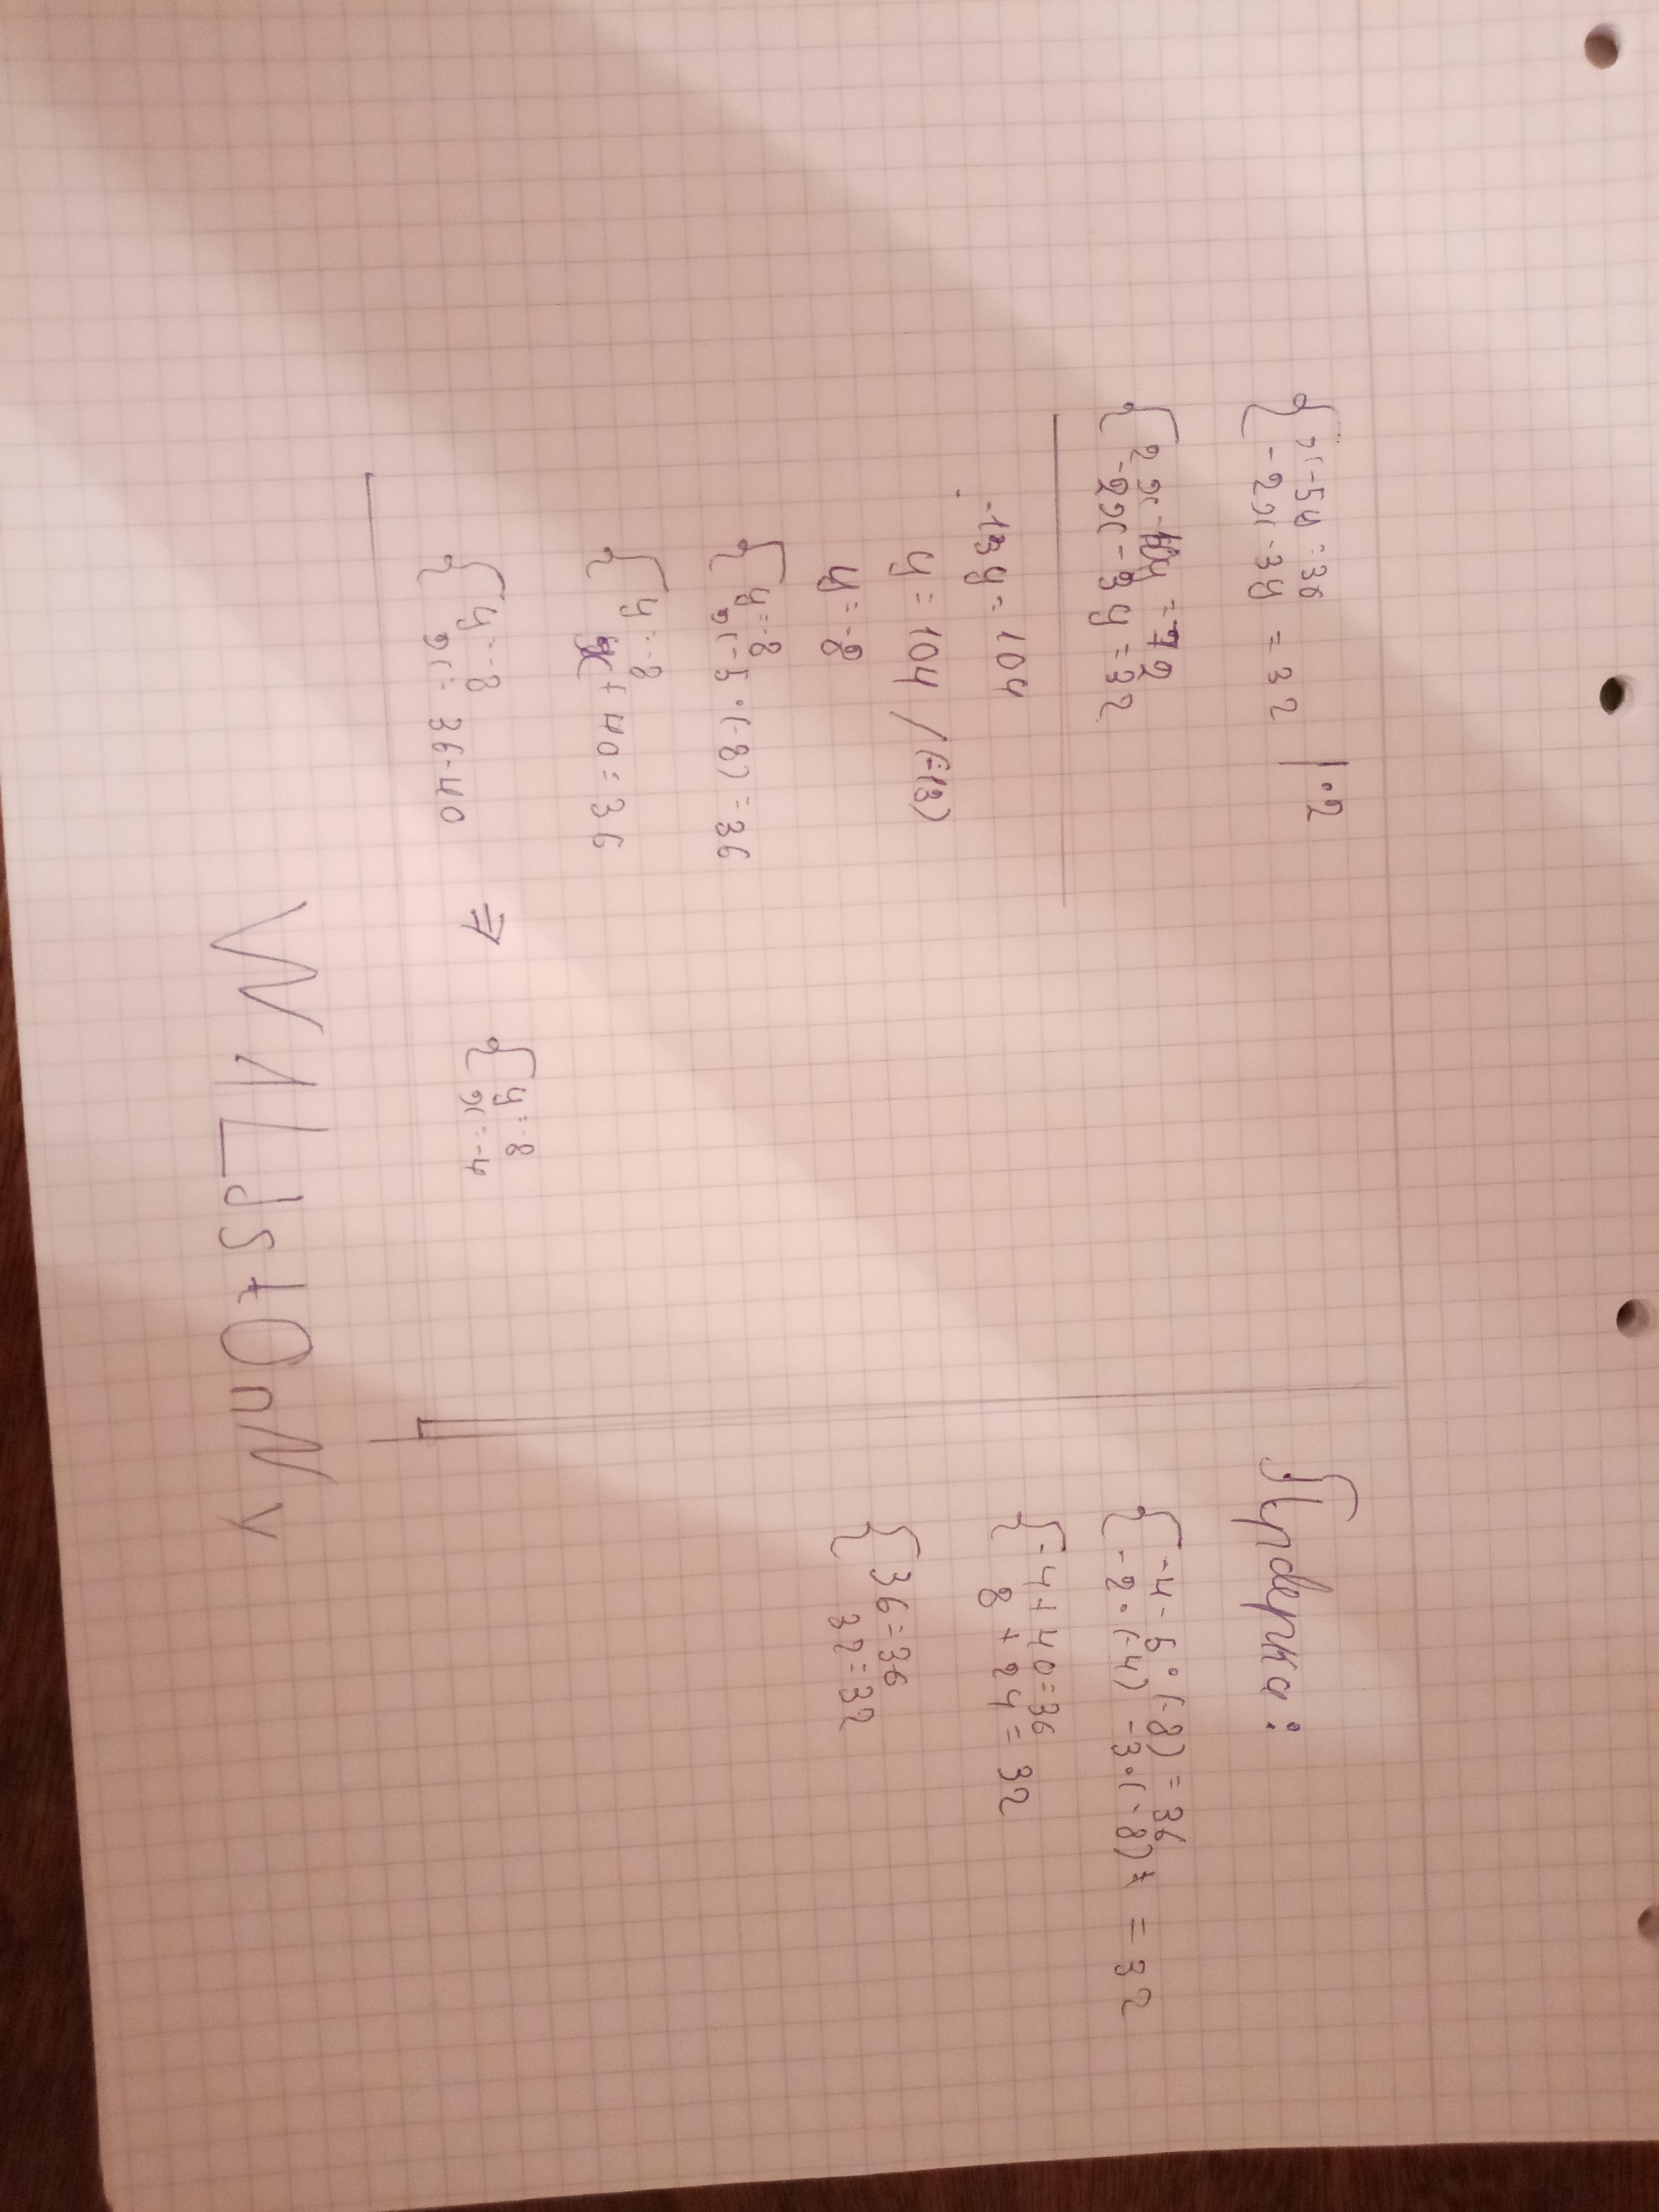 { x-5y=36 |·2
-2x-3y=32
{ 2x-10y=72
-2x-3y=32
-13y=104
y=104/(-13)
y=-8
{ y=-8
x-5·(-8)=36
{ y=-8
x+40=36
{ y=-8
x=36-40
⇒ { y=-8
x=-4
{ -4-5·(-8)=36
-2·(-4)-3·(-8) = 32
{ -4+40=36
8+24=32
{ 36=36
32=32